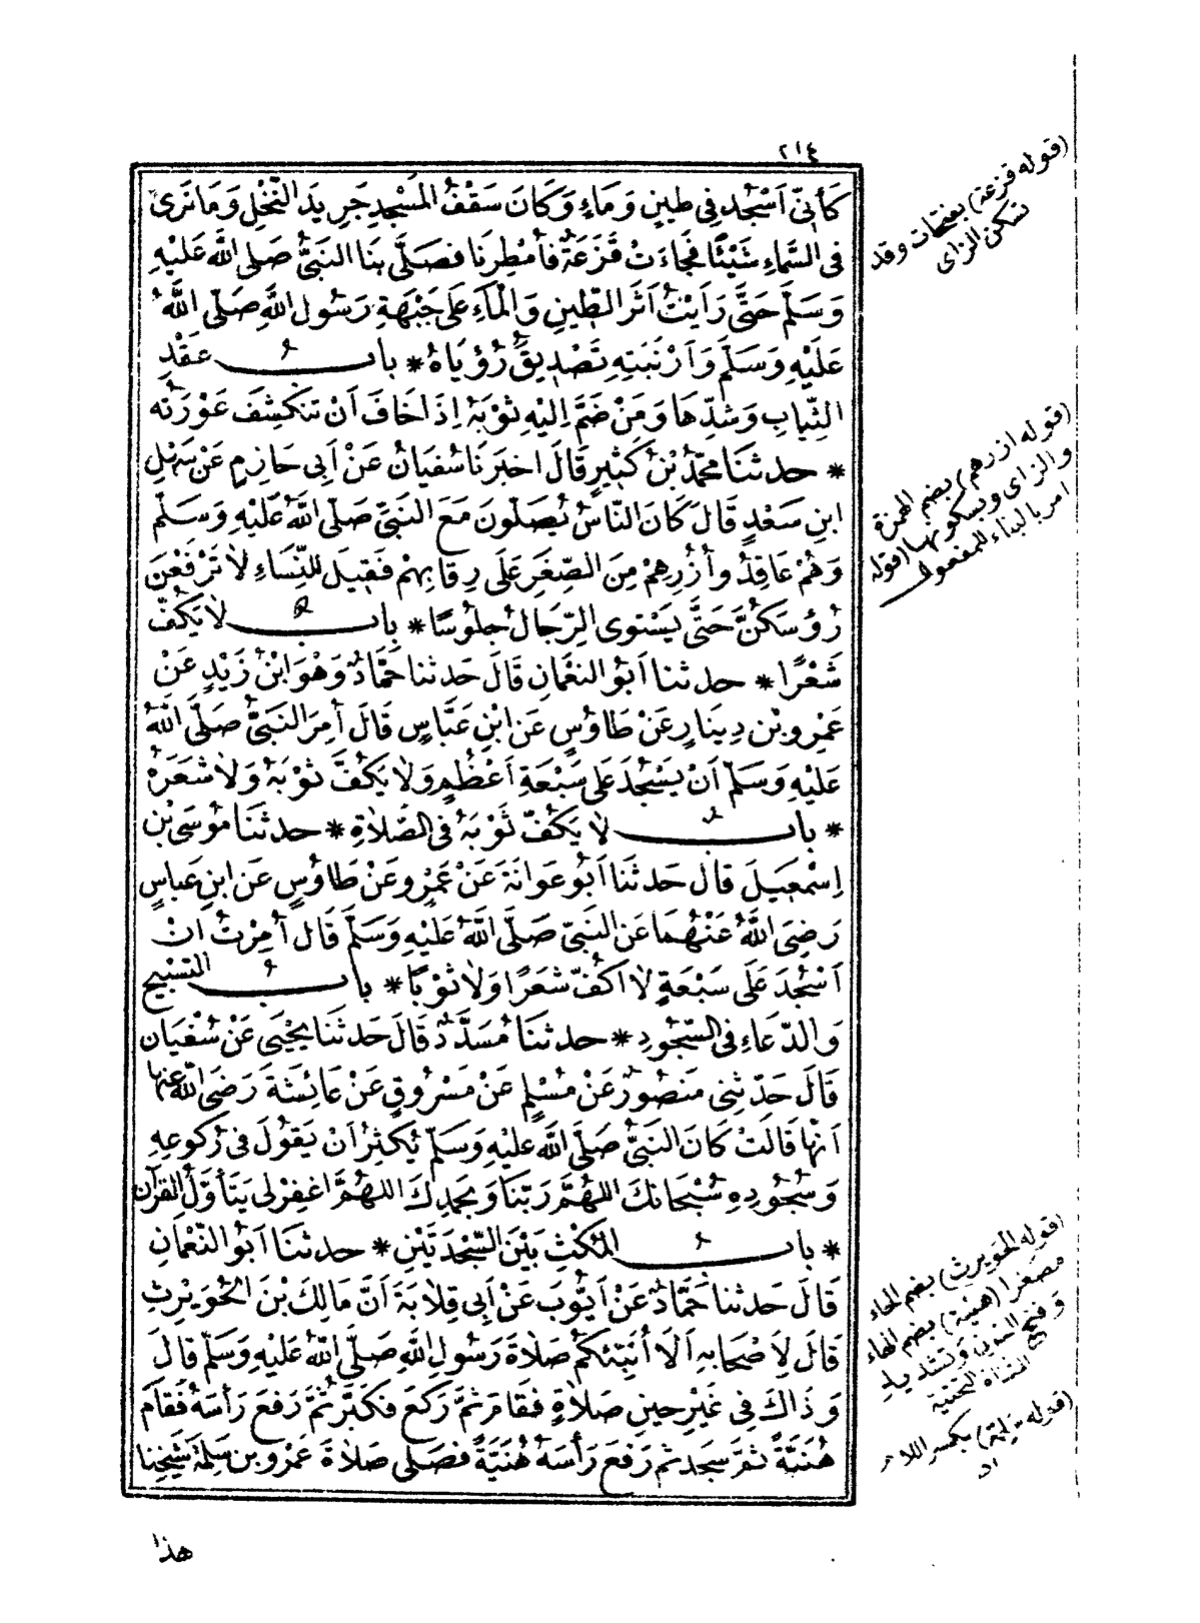 ٢١٤
كَأَنِّى أَسْجُدُ فِى طِينٍ وَمَاءٍ وَكَانَ سَقْفُ المَسْجِدِ جَرِيدَ النَّخْلِ وَمَا نَرَى
فِى السَّمَاءِ شَيْئًا فَجَاءَتْ قَزَعَةٌ فَأُمْطِرْنَا فَصَلَّى بِنَا النَّبِىُّ صَلَّى اللهُ عَلَيْهِ
وَسَلَّمَ حَتَّى رَأَيْتُ أَثَرَ الطِّينِ وَالْمَآءِ عَلَى جَبْهَةِ رَسُولِ اللهِ صَلَّى اللهُ
عَلَيْهِ وَسَلَّمَ وَأَرْنَبَتِهِ تَصْدِيقُ رُؤْيَاهُ * بابُ عَقْدِ
الثِّيَابِ وَشَدِّهَا وَمَنْ ضَمَّ إِلَيْهِ ثَوْبَهُ إِذَا خَافَ أَنْ تَنْكَشِفَ عَوْرَتُه
* حدثنَا محمَّدُ بْنُ كَثِيرٍ قَالَ اخبَرَنَا سُفْيَانُ عَنْ أَبِى حَازِمٍ عَنْ سَهْلِ
ابنِ سَعْدٍ قَالَ كَانَ النَّاسُ يُصَلُّونَ مَعَ النَّبِىِّ صَلَّى اللهُ عَلَيْهِ وَسَلَّمَ
وَهُمْ عَاقِدُ وأُزُرِهِمْ مِنَ الصِّغَرِ عَلَى رِقَابِهِمْ فَقِيلَ لِلنِّسَاءِ لَا تَرْفَعْنَ
رُؤُسَكُنَّ حَتَّى يَسْتَوِىَ الرِّجَالُ جُلُوسًا * بابُ لَا يَكُفُّ
شَعْرًا * حدثنا أَبُو النعْمَانِ قَالَ حَدثنا حَمَّادٌ وَهْوَ ابْنُ زَيْدٍ عَنْ
عَمْرِو بْنِ دِينَارٍ عَنْ طَاوُسٍ عَنِ ابْنِ عَبَّاسٍ قَالَ أُمِرَ النَّبِىُّ صَلَّى اللهُ
عَلَيْهِ وَسَلَّمَ أَنْ يَسْجُدَ عَلَى سَبْعَةِ أَعْظُمٍ وَلَا يَكُفَّ ثَوْبَهُ وَلَا شَعَرَهُ
* بابُ لَا يَكُفُّ ثَوْبَهُ فِى الصَّلَاةِ * حدثنَا مُوسَى بْنُ
إِسْمعِيلَ قَالَ حَدثنَا أَبُو عَوَانَةَ عَنْ عَمْرٍو عَنْ طَاوُسٍ عَنِ ابنِ عَباسٍ
رَضِىَ اللهُ عَنْهُمَا عَنِ النَّبِىِّ صَلَّى اللهُ عَلَيْهِ وَسَلَّمَ قَالَ أُمِرْتُ انْ
أَسْجُدَ عَلَى سَبْعَةٍ لَا أَكُفُّ شَعَرًا وَلَا ثَوْبًا * بابُ التسْبِيحِ
وَالدُّعَاءِ فِى السُّجُودِ * حدثنَا مُسَدَّدٌ قَالَ حَدثنَا يَحْيَى عَنْ سُفْيَانَ
قَالَ حَدَّثَنِى مَنصُورٌ عَنْ مُسْلِمٍ عَنْ مَسْرُوقٍ عَنْ عَائِشَةَ رَضِىَ اللهُ عنها
أَنَّهَا قَالَتْ كَانَ النَّبِىُّ صَلَّى اللهُ عَلَيْهِ وَسَلَّمَ يُكْثِرُ أَنْ يَقُولَ فِى رُكُوعِهِ
وَسُجُودِهِ سُبْحَانَكَ اللهُمَّ رَبَّنَا وَبِحَمْدِكَ اللهُمَّ اغْفِرْ لِى يَتَأَوَّلُ القُرْآنَ
* بابُ المُكْثِ بَيْنَ السَّجْدَتَيْنِ * حدثنَا أَبُو النُّعْمَانِ
قَالَ حَدثنا حَمَّادٌ عَنْ أَيُّوبَ عَنْ أَبِى قِلَابَةَ أَنَّ مَالِكَ بْنَ الْحُوَيْرِثِ
قَالَ لِأَصْحَابِهِ أَلَا أُنَبِّئُكُمْ صَلَاةَ رَسُولِ اللهِ صَلَّى اللهُ عَلَيْهِ وَسَلَّمَ قَالَ
وَذَاكَ فِى غَيْرِ حِينِ صَلَاةٍ فَقَامَ ثُمَّ رَكَعَ فَكَبَّرَ ثُمَّ رَفَعَ رَأْسَهُ فَقَامَ
هُنَيَّةً ثُمَّ سَجَدَ ثُمَّ رَفَعَ رَأْسَهُ هُنَيَّةً فَصَلَّى صَلَاةَ عَمْرِو بنِ سَلِمَةَ شَيْخِنَا
هذا
(قوله قزعة) بفتحات وقد
تسكن الزاى
(قوله ازرهم) بضم الهمزة
والزاى وبسكونها (قوله
امر بالبناء للمفعول
(قوله الحويرث) بضم الحاء
مصغرا (هنية) بضم الهاء
وفتح النون وتشديد
المثناة التحتية
(قوله سلمة) بكسر اللام
اه